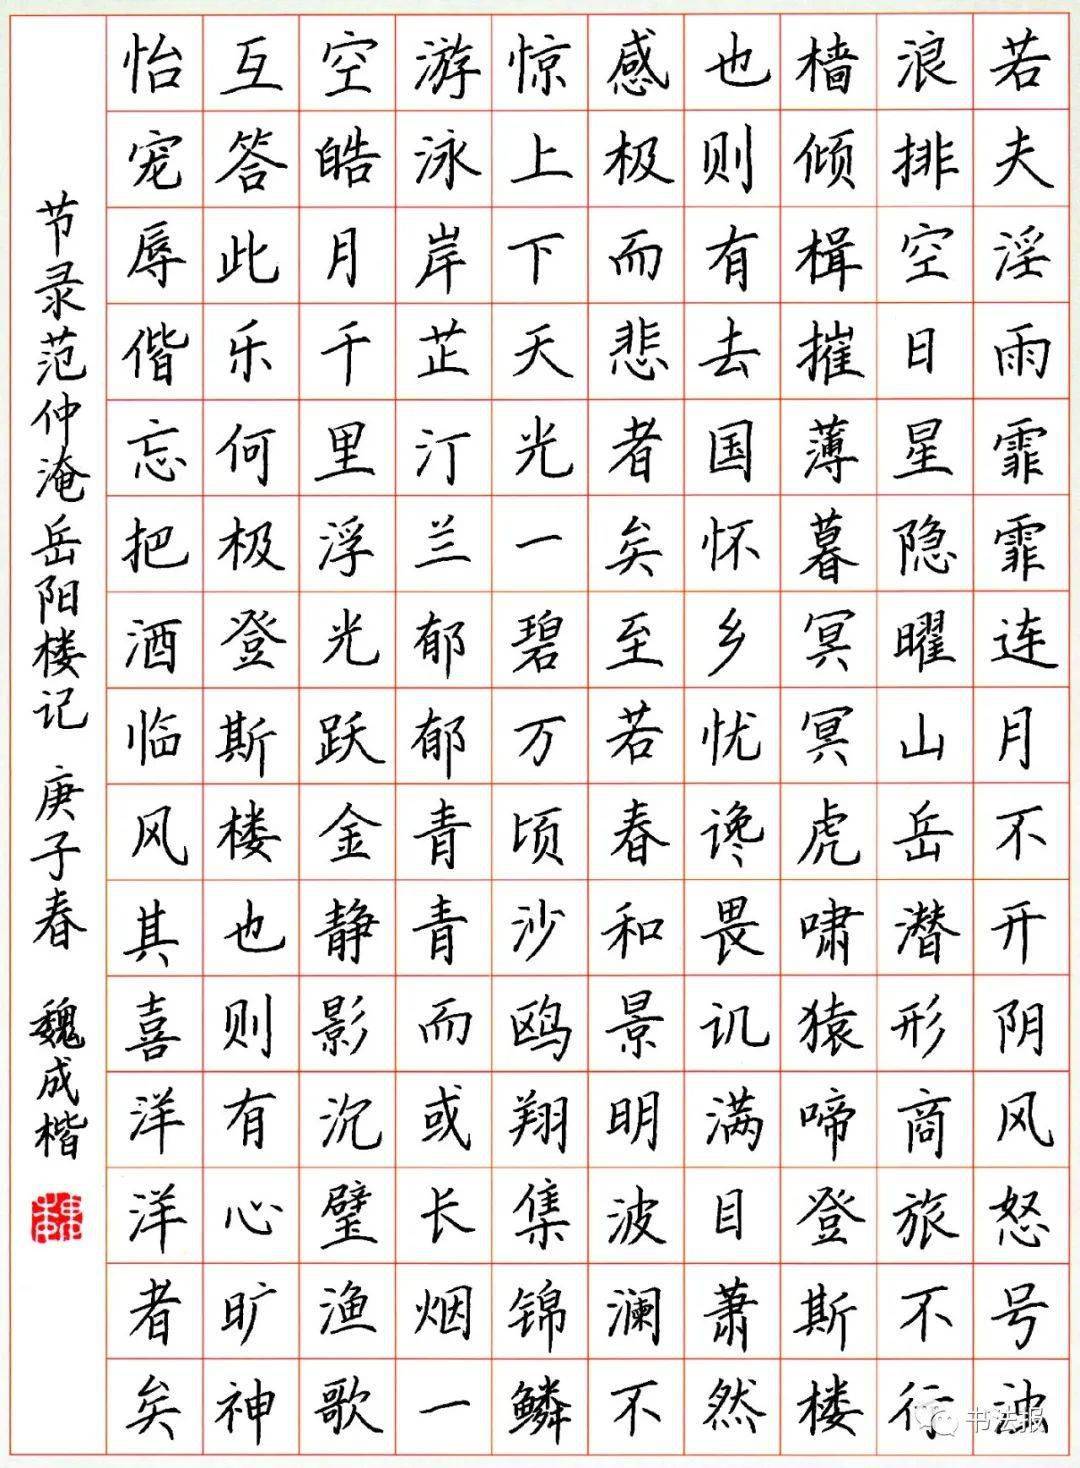 若夫淫雨霏霏连月不开阴风怒号浊
浪排空日星隐曜山岳潜形商旅不行
樯倾楫摧薄暮冥冥虎啸猿啼登斯楼
也则有去国怀乡忧谗畏讥满目萧然
感极而悲者矣至若春和景明波澜不
惊上下天光一碧万顷沙鸥翔集锦鳞
游泳岸芷汀兰郁郁青青而或长烟一
空皓月千里浮光跃金静影沉璧渔歌
互答此乐何极登斯楼也则有心旷神
怡宠辱偕忘把酒临风其喜洋洋者矣
节录范仲淹岳阳楼记 庚子春 魏成楷
书法报